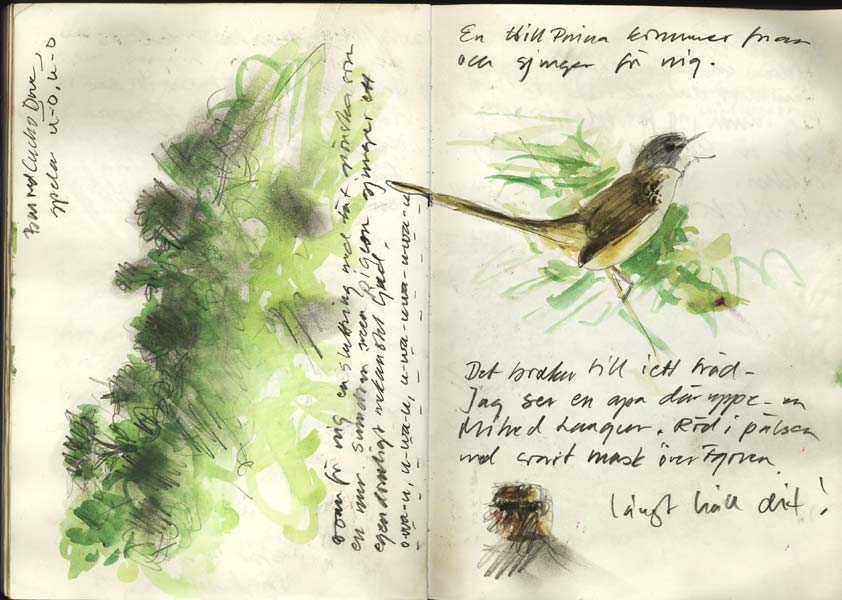 Barred Cucko Dove,
spelar u-o, u-o
som för mig en sluttning med tät grönska som
en mur. Sumatran Green Pigeon sjunger ett
egendomligt mekaniskt ljud.
o-wa-u, u-wa-u, u-wa-wa-u-wa-u
En till Prinia kommer fram
och sjunger för mig.
Det brakar till i ett träd-
Jag ser en apa där uppe - en
Mitred Langur. Röd i pälsen
med svart mask över ögonen
långt håll dit!